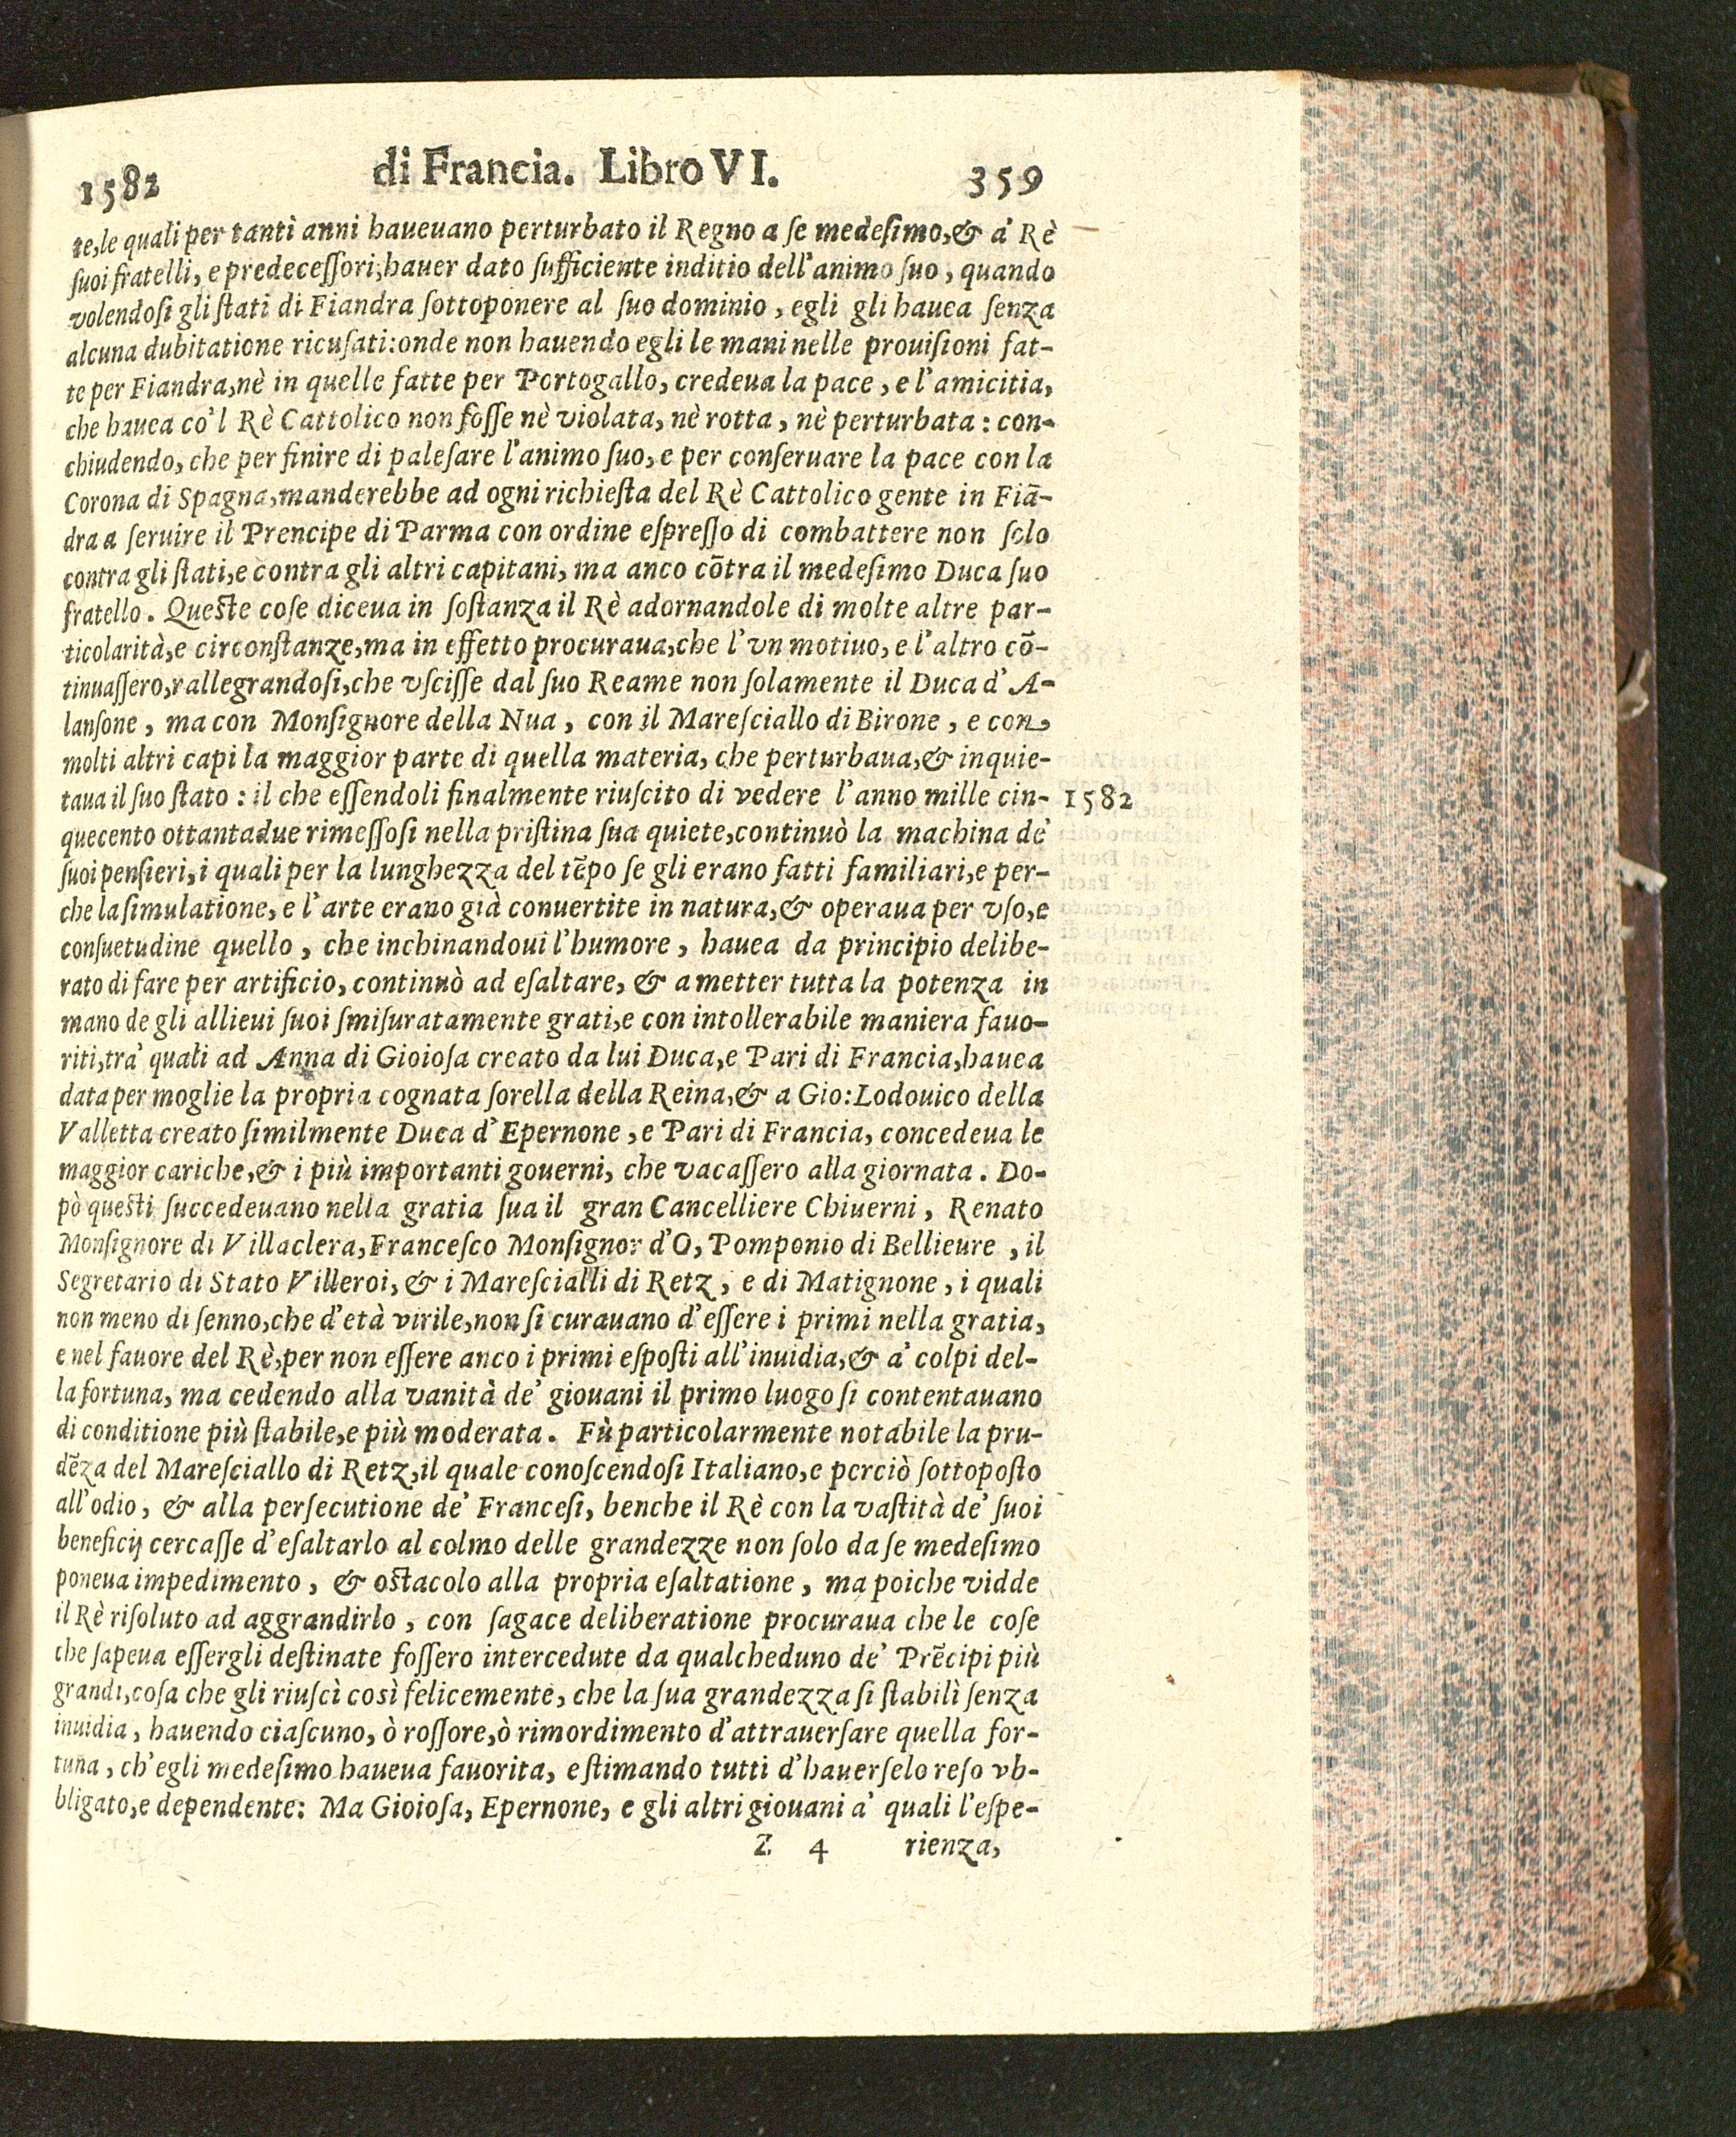 1582 di Francia. Libro VI. 359
te,le quali per tanti anni haueuano perturbato il Regno a ſe medeſimo,& a' Rè
ſuoi fratelli, e predeceſſori,hauer dato ſufficiente inditio dell'animo ſuo, quando
volendoſi gli ſtati di Fiandra ſottoponere al ſuo dominio, egli gli hauea ſenza
alcuna dubitatione ricuſati:onde non hauendo egli le mani nelle prouiſioni fat-
te per Fiandra,nè in quelle fatte per Portogallo, credeua la pace, e l'amicitia,
che hauea co'l Rè Cattolico non foſſe nè violata, nè rotta, nè perturbata: con-
chiudendo, che per finire di paleſare l'animo ſuo, e per conſeruare la pace con la
Corona di Spagna,manderebbe ad ogni richieſta del Rè Cattolico gente in Fiā-
dra a ſeruire il Prencipe di Parma con ordine eſpreſſo di combattere non ſolo
contra gli ſtati,e contra gli altri capitani, ma anco cōtra il medeſimo Duca ſuo
fratello. Queſte coſe diceua in ſoſtanza il Rè adornandole di molte altre par-
ticolarità,e circonſtanze,ma in effetto procuraua,che l'vn motiuo, e l'altro cō-
tinuaſſero,rallegrandoſi,che vſciſſe dal ſuo Reame non ſolamente il Duca d'A-
lanſone, ma con Monſignore della Nua, con il Mareſciallo di Birone, e con
molti altri capi la maggior parte di quella materia, che perturbaua,& inquie-
taua il ſuo ſtato: il che eſſendoli finalmente riuſcito di vedere l'anno mille cin- 1582
quecento ottantadue rimeſſoſi nella priſtina ſua quiete,continuò la machina de'
ſuoi penſieri,i quali per la lunghezza del tēpo ſe gli erano fatti familiari,e per-
che la ſimulatione, e l'arte erano già conuertite in natura,& operaua per vſo,e
conſuetudine quello, che inchinandoui l'humore, hauea da principio delibe-
rato di fare per artificio, continuò ad eſaltare, & a metter tutta la potenza in
mano de gli allieui ſuoi ſmiſuratamente grati,e con intollerabile maniera fauo-
riti,tra' quali ad Anna di Gioioſa creato da lui Duca,e Pari di Francia,hauea
data per moglie la propria cognata ſorella della Reina,& a Gio:Lodouico della
Valletta creato ſimilmente Duca d'Epernone, e Pari di Francia, concedeua le
maggior cariche,& i più importanti gouerni, che vacaſſero alla giornata. Do-
pò queſti ſuccedeuano nella gratia ſua il gran Cancelliere Chiuerni, Renato
Monſignore di Villaclera,Franceſco Monſignor d'O, Pomponio di Bellieure, il
Segretario di Stato Villeroi, & i Mareſcialli di Retz, e di Matignone, i quali
non meno di ſenno,che d'età virile,non ſi curauano d'eſſere i primi nella gratia,
e nel fauore del Rè,per non eſſere anco i primi eſpoſti all'inuidia,& a' colpi del-
la fortuna, ma cedendo alla vanità de' giouani il primo luogo ſi contentauano
di conditione più ſtabile,e più moderata. Fù particolarmente notabile la pru-
dēza del Mareſciallo di Retz,il quale conoſcendoſi Italiano,e perciò ſottopoſto
all'odio, & alla perſecutione de' Franceſi, benche il Rè con la vaſtità de' ſuoi
beneficij cercaſſe d'eſaltarlo al colmo delle grandezze non ſolo da ſe medeſimo
poneua impedimento, & oſtacolo alla propria eſaltatione, ma poiche vidde
il Rè riſoluto ad aggrandirlo, con ſagace deliberatione procuraua che le coſe
che ſapeua eſſergli deſtinate foſſero intercedute da qualcheduno de' Prēcipi più
grandi,coſa che gli riuſcì così felicemente, che la ſua grandezza ſi ſtabilì ſenza
inuidia, hauendo ciaſcuno, ò roſſore,ò rimordimento d'attrauerſare quella for-
tuna, ch'egli medeſimo haueua fauorita, e ſtimando tutti d'hauerſelo reſo vb-
bligato,e dependente: Ma Gioioſa, Epernone, e gli altri giouani a' quali l'eſpe-
Z 4 rienza,